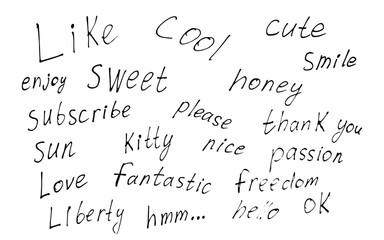 Like Cool cute
Smile
enjoy Sweet honey
Subscribe please thank you
Sun Kitty nice passion
Love fantastic freedom
Liberty hmm... hello OK